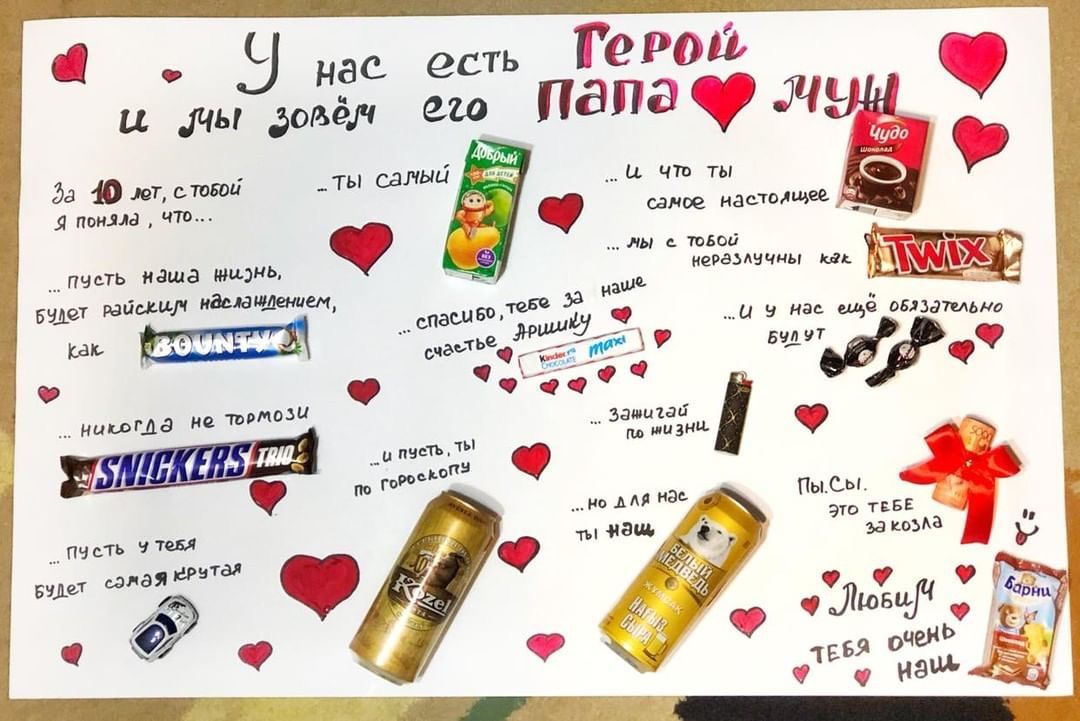 У нас есть Герой
и мы зовём его папа муж
За 10 лет, с тобой
я поняла, что...
...ты самый
Добрый
для детей
...и что ты
самое настоящее
Чудо
Шоколад
...мы с тобой
неразлучны как
TWIX
...пусть наша жизнь,
будет райским наслаждением,
как
BOUNTY
...спасибо, тебе за наше
счастье Аришику
Kinder
CHOCOLATE
maxi
...и у нас ещё обязательно
будут
...никогда не тормози
SNICKERS TRIO
...зажигай
по жизни
...и пусть, ты
по гороскопу
Kozel
...но для нас
ты наш
БЕЛЫЙ
МЕДВЕДЬ
ЖУМБАҚ
НАҒЫЗ
СЫРА
Пы.Сы.
это тебе
за козла
...пусть у тебя
будет самая крутая
Любим
тебя очень
наш
Барни